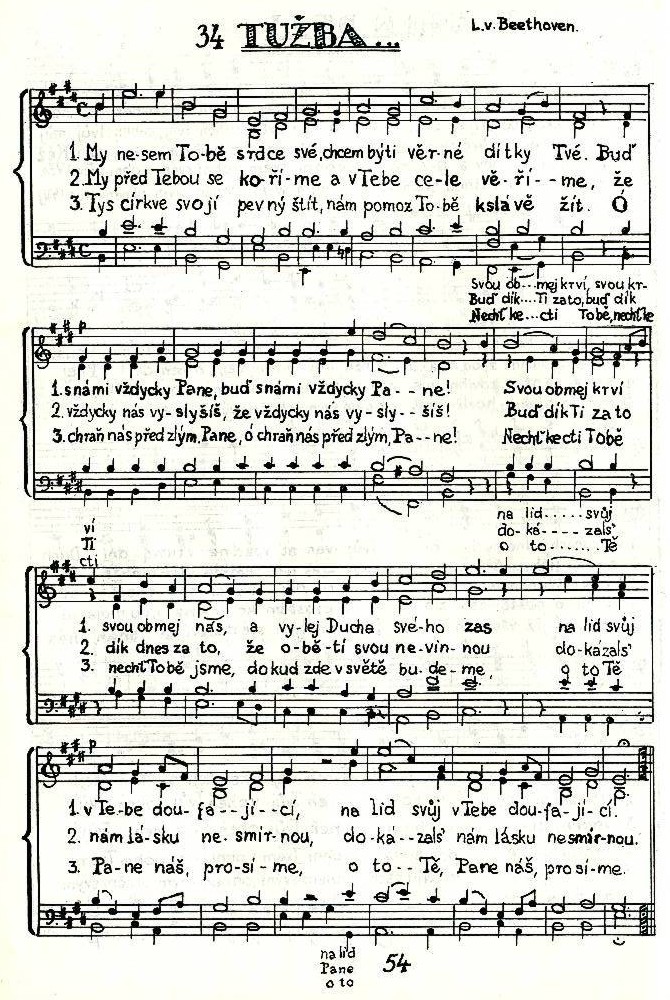 34 TUŽBA...
L.v.Beethoven.
1. My ne-sem To-bě srdce své, chcem býti věr-né dítky Tvé. Buď
2. My před Tebou se ko-ří-me a v Tebe ce-le vě-ří--me, že
3. Tys církve svojí pevný štít, nám pomoz To-bě k slávě žít. Ó
Svou ob...mej krví, svou kr-
Buď dík...Ti za to, buď dík
Nechť ke...cti Tobě, nechť ke
p
1. s námi vždycky Pane, buď s námi vždycky Pa--ne! Svou obmej krví
2. vždycky nás vy-slyšíš, že vždycky nás vy-sly--šíš! Buď dík Ti za to
3. chraň nás před zlým, Pane, ó chraň nás před zlým, Pa--ne! Nechť ke cti Tobě
na lid.....svůj
do-ká----zals'
o to.......Tě
ví
Ti
cti
1. svou obmej nás, a vy-lej Ducha své-ho zas na lid svůj
2. dík dnes za to, že o-bě-tí svou ne-vin-nou do-ká zals'
3. nechť Tobě jsme, dokud zde v světě bu-de-me, o to Tě
p
1. v Te-be dou-fa--jí--cí, na lid svůj v Tebe dou-fa-jí-cí.
2. nám lá-sku ne-smír-nou, do-ká--zals' nám lásku nesmír-nou.
3. Pa-ne náš, pro-sí-me, o to--Tě, Pane náš, prosí-me.
na lid
Pane
o to
54